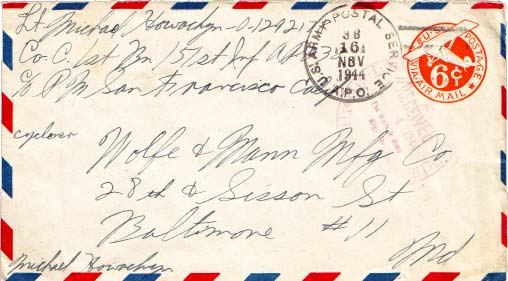 Lt. Michael Howachyn - O-129217
Co. C. 1st Bn 151st Inf APO 38
c/o P.M San Francisco Calif
U.S. ARMY POSTAL SERVICE
38
16
NOV
1944
A.P.O.
U.S. POSTAGE
6¢
VIA AIR MAIL
RECEIVED
Wolfe & Mann Mfg Co
28th & Sisson St
Baltimore #11
Md
Michael Howachyn